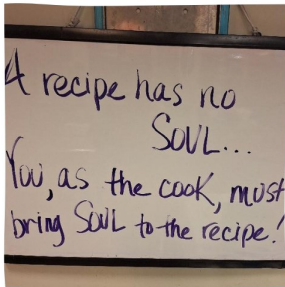 A recipe has no
SOUL...
You, as the cook, must
bring SOUL to the recipe!